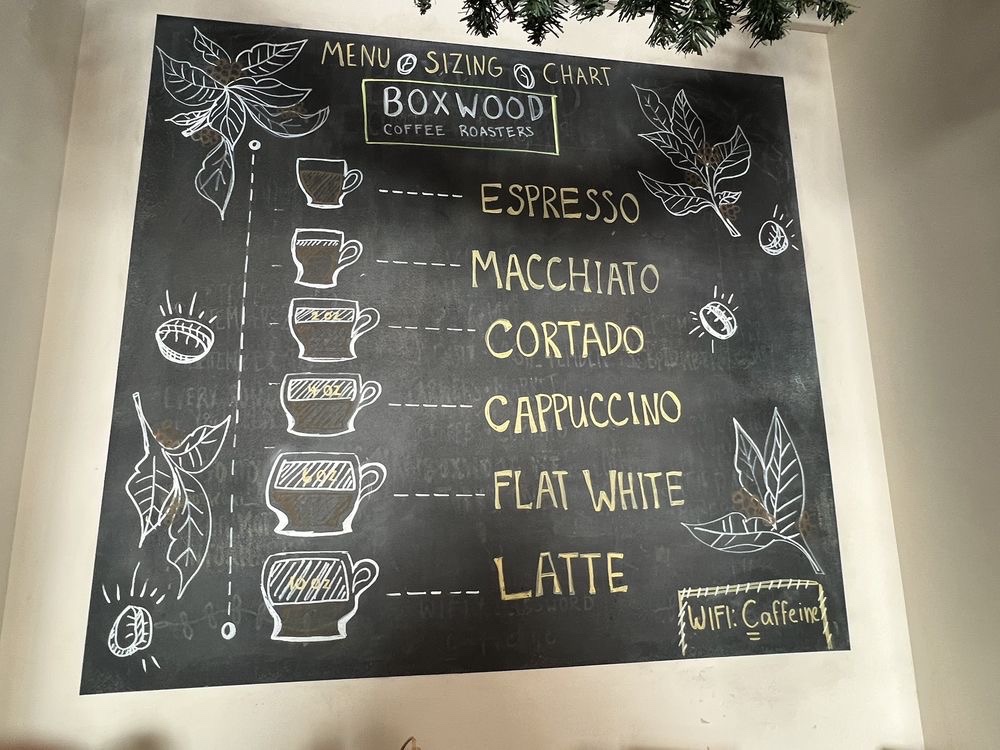 MENU & SIZING CHART
BOXWOOD
COFFEE ROASTERS
ESPRESSO
MACCHIATO
2 OZ CORTADO
4 OZ CAPPUCCINO
6 OZ FLAT WHITE
10 OZ LATTE
WIFI: Caffeine